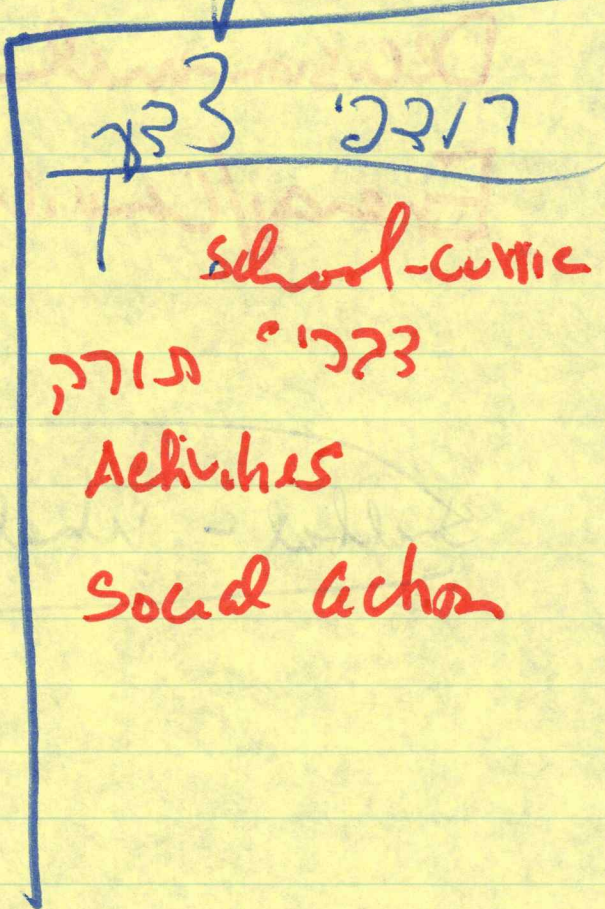 רודפי צדק
school-curric
דברי תורה
Activities
Social action